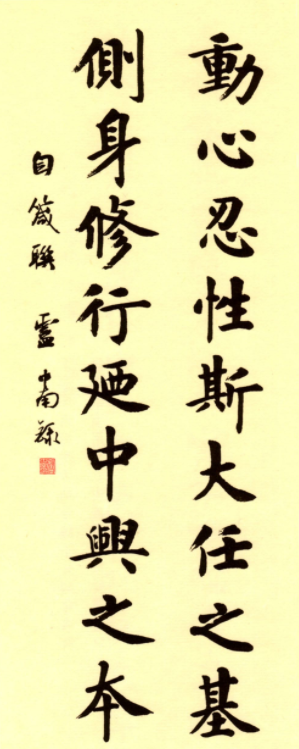 動心忍性斯大任之基
側身修行廼中興之本
自箴聯 盧南錄